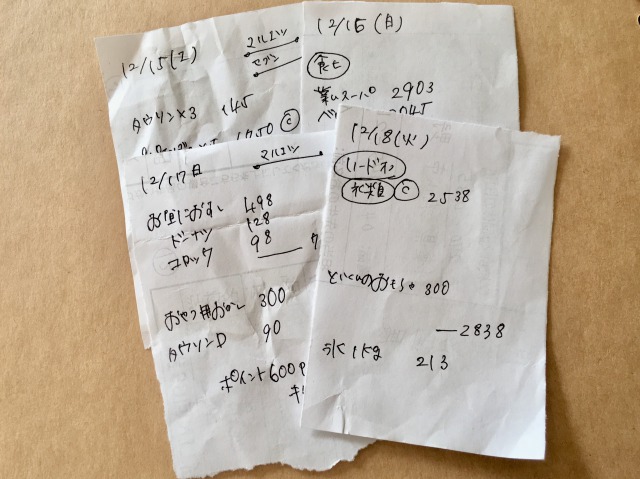 12/15(土)
マルエツ
セブン
タウリン×3 145
1750 C
12/16(日)
食モ
業ムスーパ 2903
12/17 日
マルエツ
498
ドーナツ 128
コロッケ 98
おやつ用おかし 300
タウリンD 90
ポイント600P
12/18(火)
ハードオフ
衣類 C 2538
といくんのおもちゃ 300
2838
氷 1kg 213